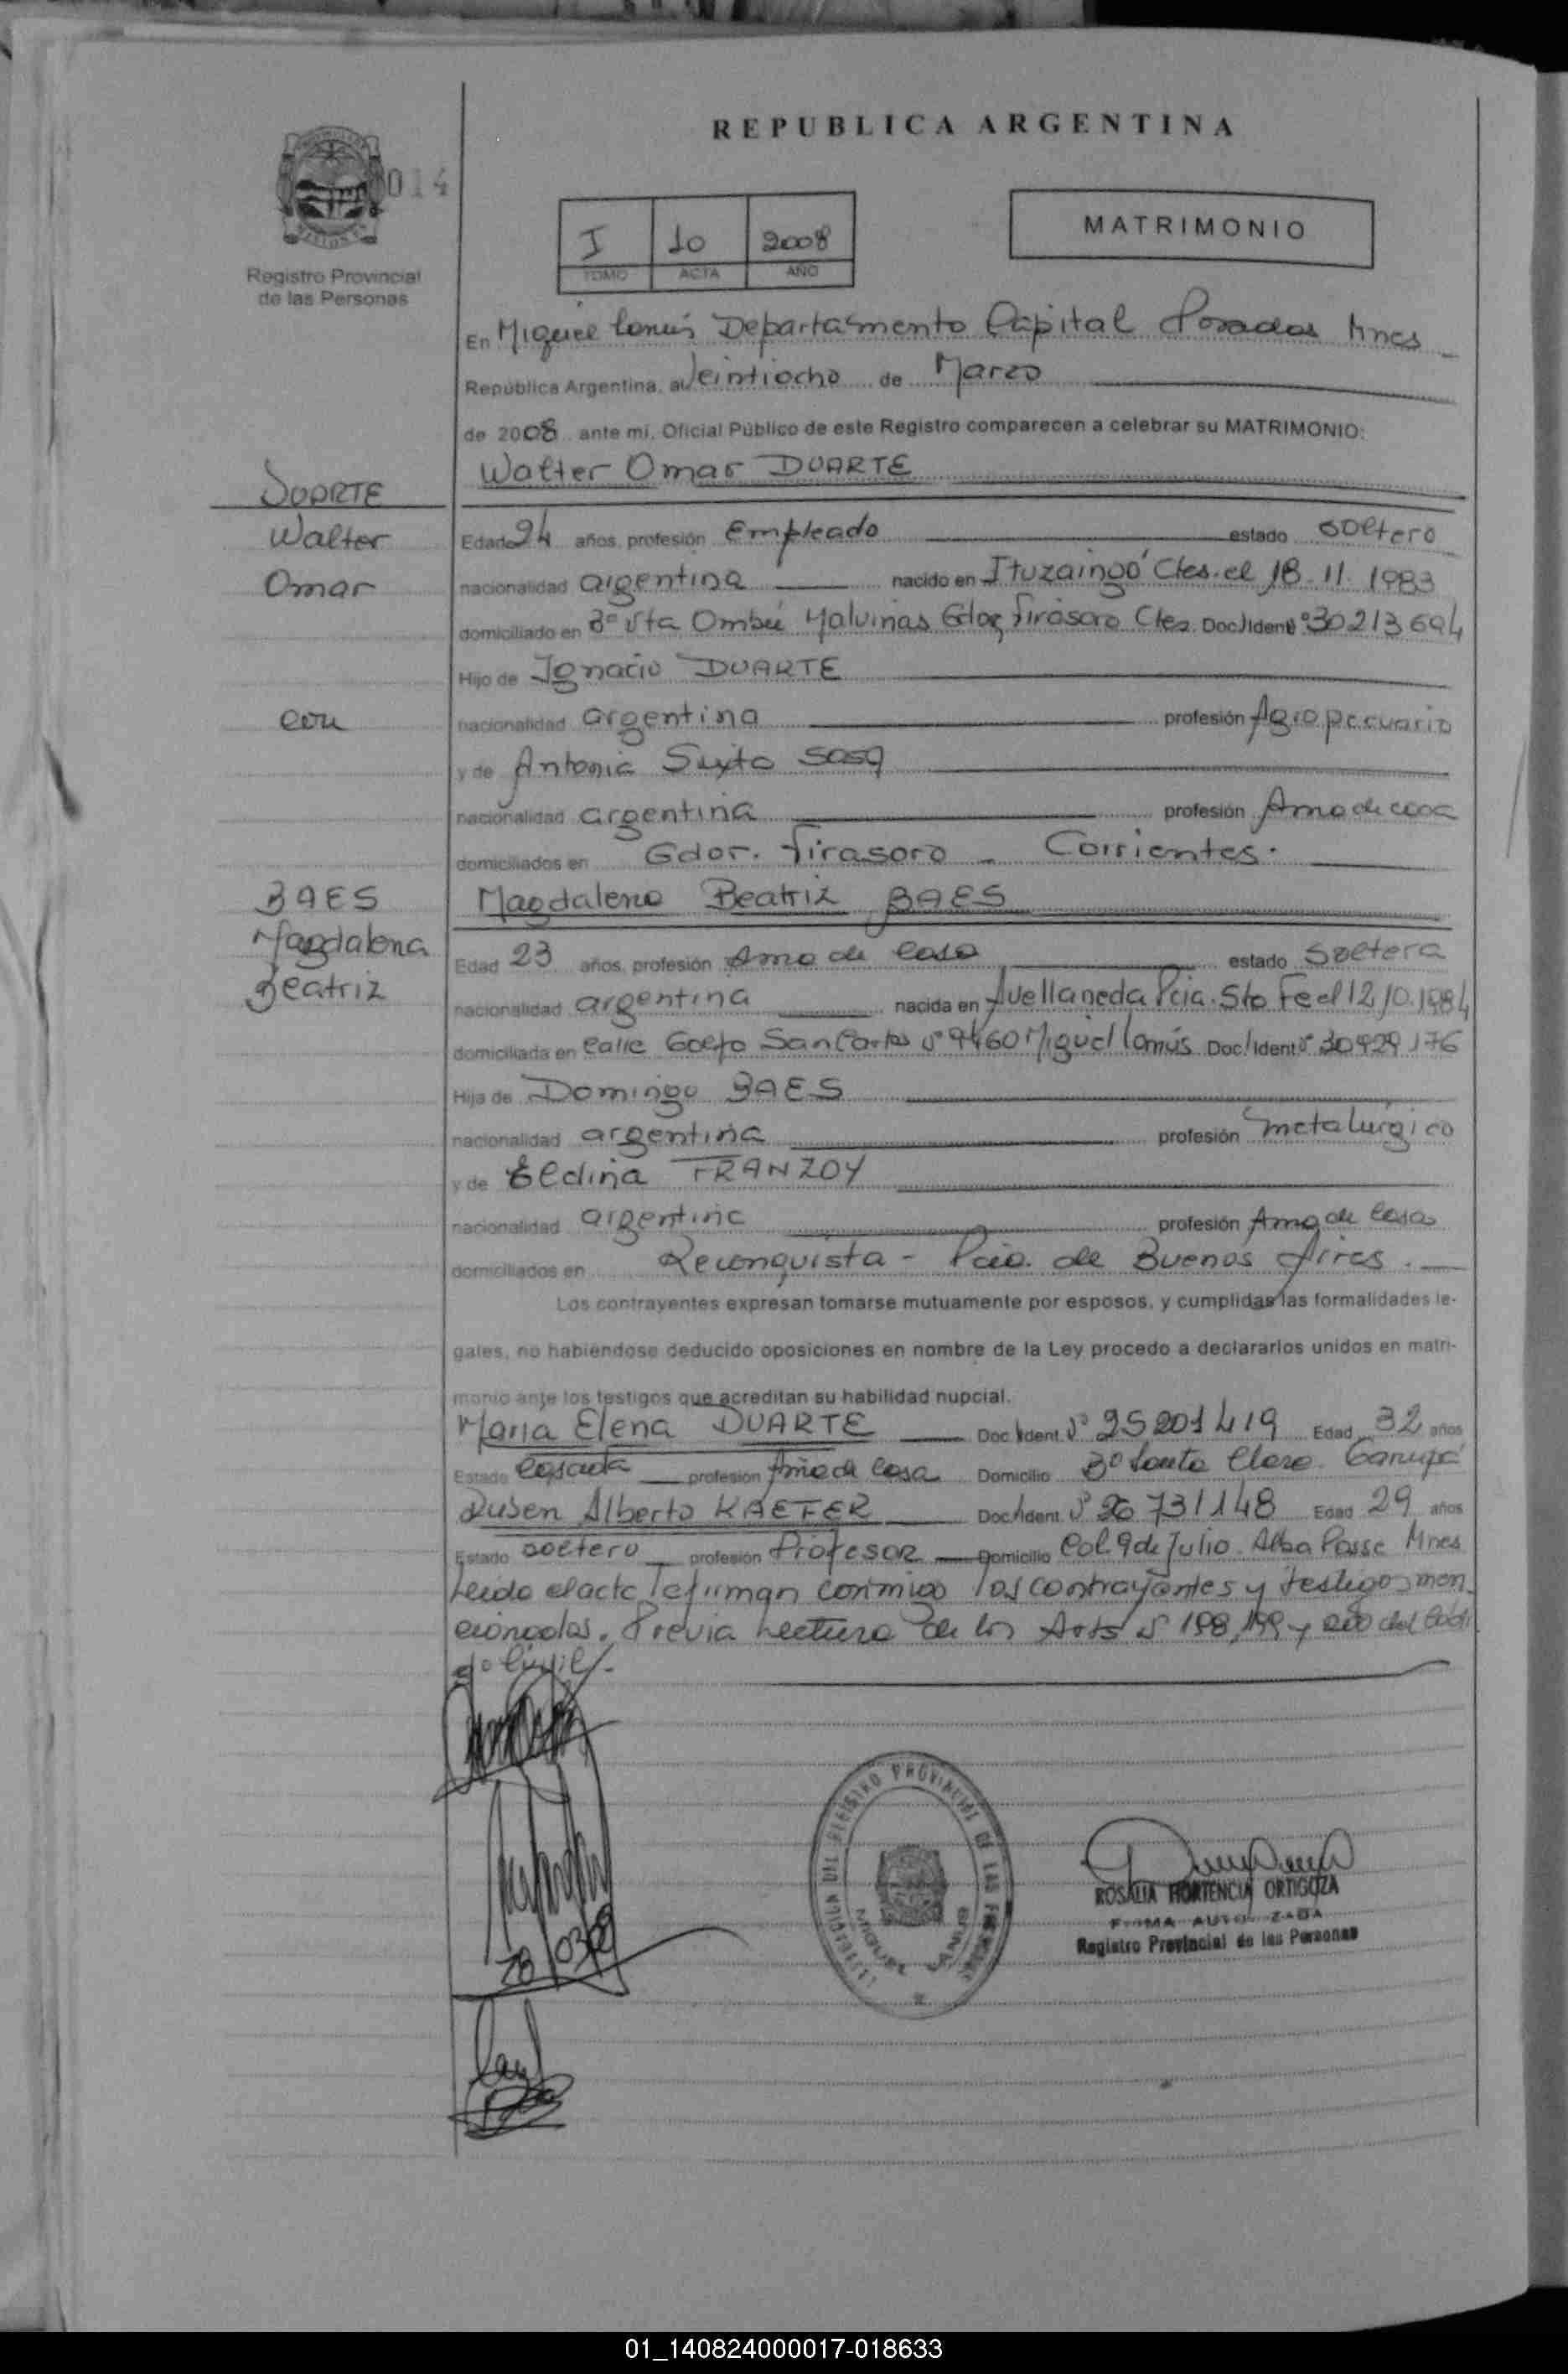 REPUBLICA ARGENTINA
014
MATRIMONIO
I 10 2008
TOMO ACTA AÑO
Registro Provincial
de las Personas
En Miguel Lanús Departamento Capital Posadas Mnes
República Argentina, a Veintiocho de Marzo
de 2008 ante mi, Oficial Público de este Registro comparecen a celebrar su MATRIMONIO:
Walter Omar DUARTE
DUARTE
Walter
Omar
Edad 24 años, profesión Empleado estado soltero
nacionalidad argentina nacido en Ituzaingó Ctes. el 18.11.1983
domiciliado en Bº Vta Ombú Malvinas Gdor Virasoro Ctes. Doc. Ident Nº 30213694
Hijo de Ignacio DUARTE
con
nacionalidad argentina profesión Agropecuario
y de Antonia Sixta Sosa
nacionalidad argentina profesión Ama de casa
domiciliados en Gdor. Virasoro - Corrientes.
BAES
Magdalena
Beatriz
Magdalena Beatriz BAES
Edad 23 años, profesión Ama de Casa estado Soltera
nacionalidad argentina nacida en Avellaneda Pcia. Sta Fe el 12.10.1984
domiciliada en Calle Golfo San Carlos Nº 9460 Miguel Lanús Doc. Ident Nº 30929176
Hija de Domingo BAES
nacionalidad argentina profesión metalúrgico
y de Eldina FRANZOY
nacionalidad argentina profesión Ama de Casa
domiciliados en Reconquista - Pcia. de Buenos Aires.
Los contrayentes expresan tomarse mutuamente por esposos, y cumplidas las formalidades le-
gales, no habiendose deducido oposiciones en nombre de la Ley procedo a declararlos unidos en matri-
monio ante los testigos que acreditan su habilidad nupcial.
Maria Elena DUARTE Doc. Ident. Nº 25201419 Edad 32 años
Estado Casada profesión Ama de Casa Domicilio Bº Santa Clara Garupá
Ruben Alberto KAEFER Doc. Ident. Nº 26731148 Edad 29 años
Estado soltero profesión Profesor Domicilio Col. 9 de Julio Alba Posse Mnes
Leido el acta la firman conmigo los contrayentes y testigos men
cionados. Previa Lectura de los Arts Nº 198, 199 y 200 del Códi
go Civil.
28/03/08
DEL REGISTRO PROVINCIAL DE LAS PERSONAS
MIGUEL LANUS
ROSALIA HORTENCIA ORTIGOZA
FIRMA AUTORIZADA
Registro Provincial de las Personas
01_140824000017-018633